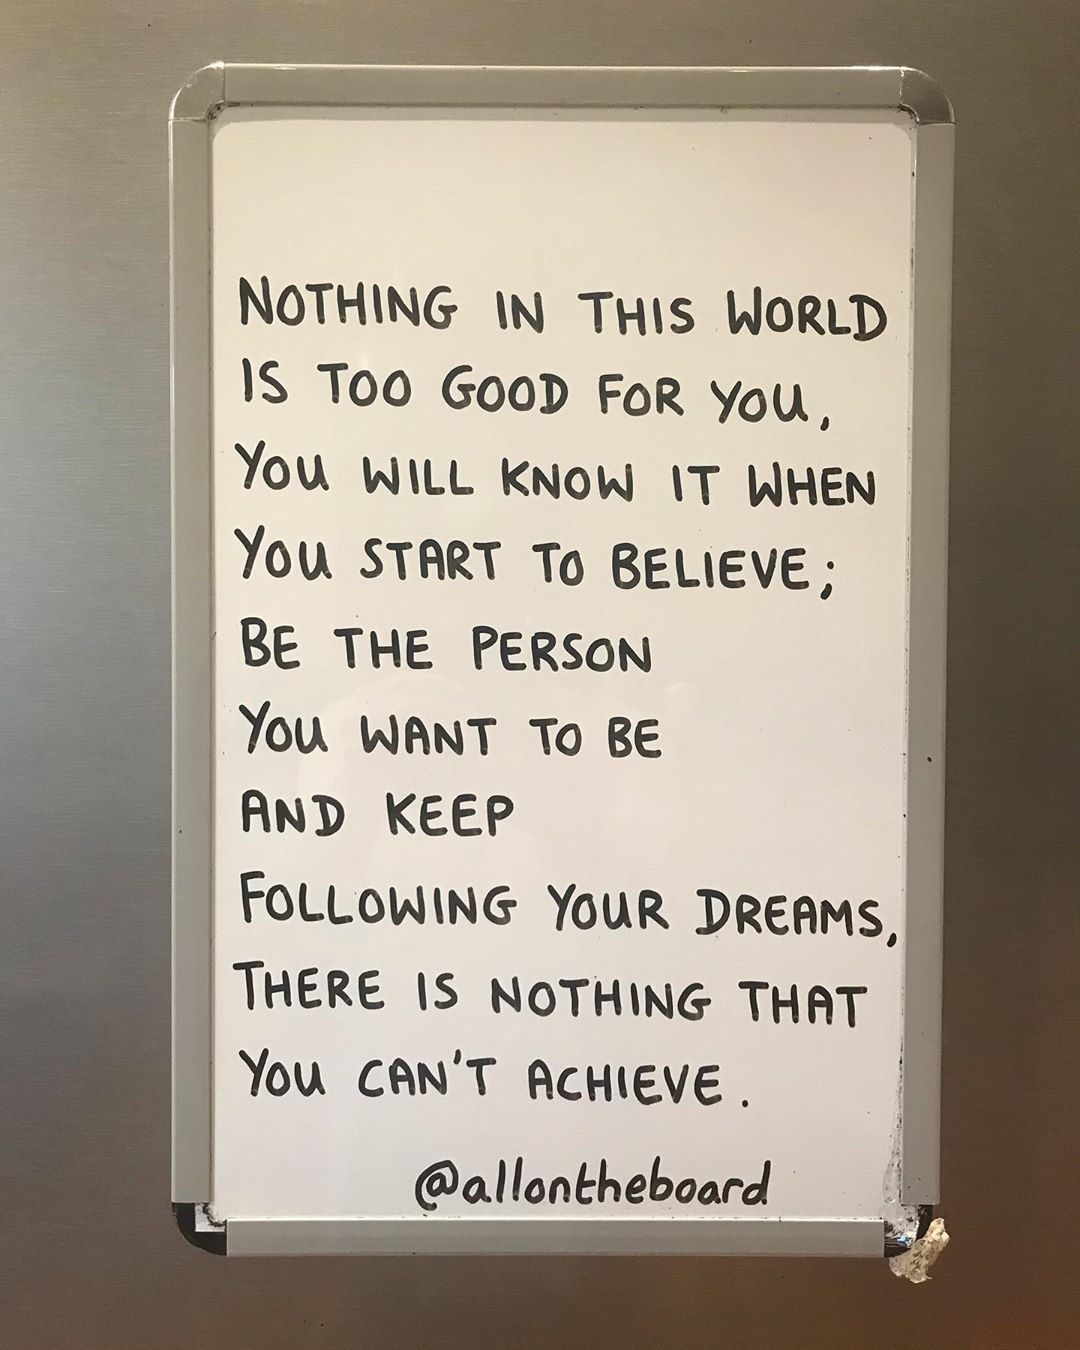 NOTHING IN THIS WORLD
IS TOO GOOD FOR YOU,
YOU WILL KNOW IT WHEN
YOU START TO BELIEVE;
BE THE PERSON
YOU WANT TO BE
AND KEEP
FOLLOWING YOUR DREAMS,
THERE IS NOTHING THAT
YOU CAN'T ACHIEVE.
@allontheboard